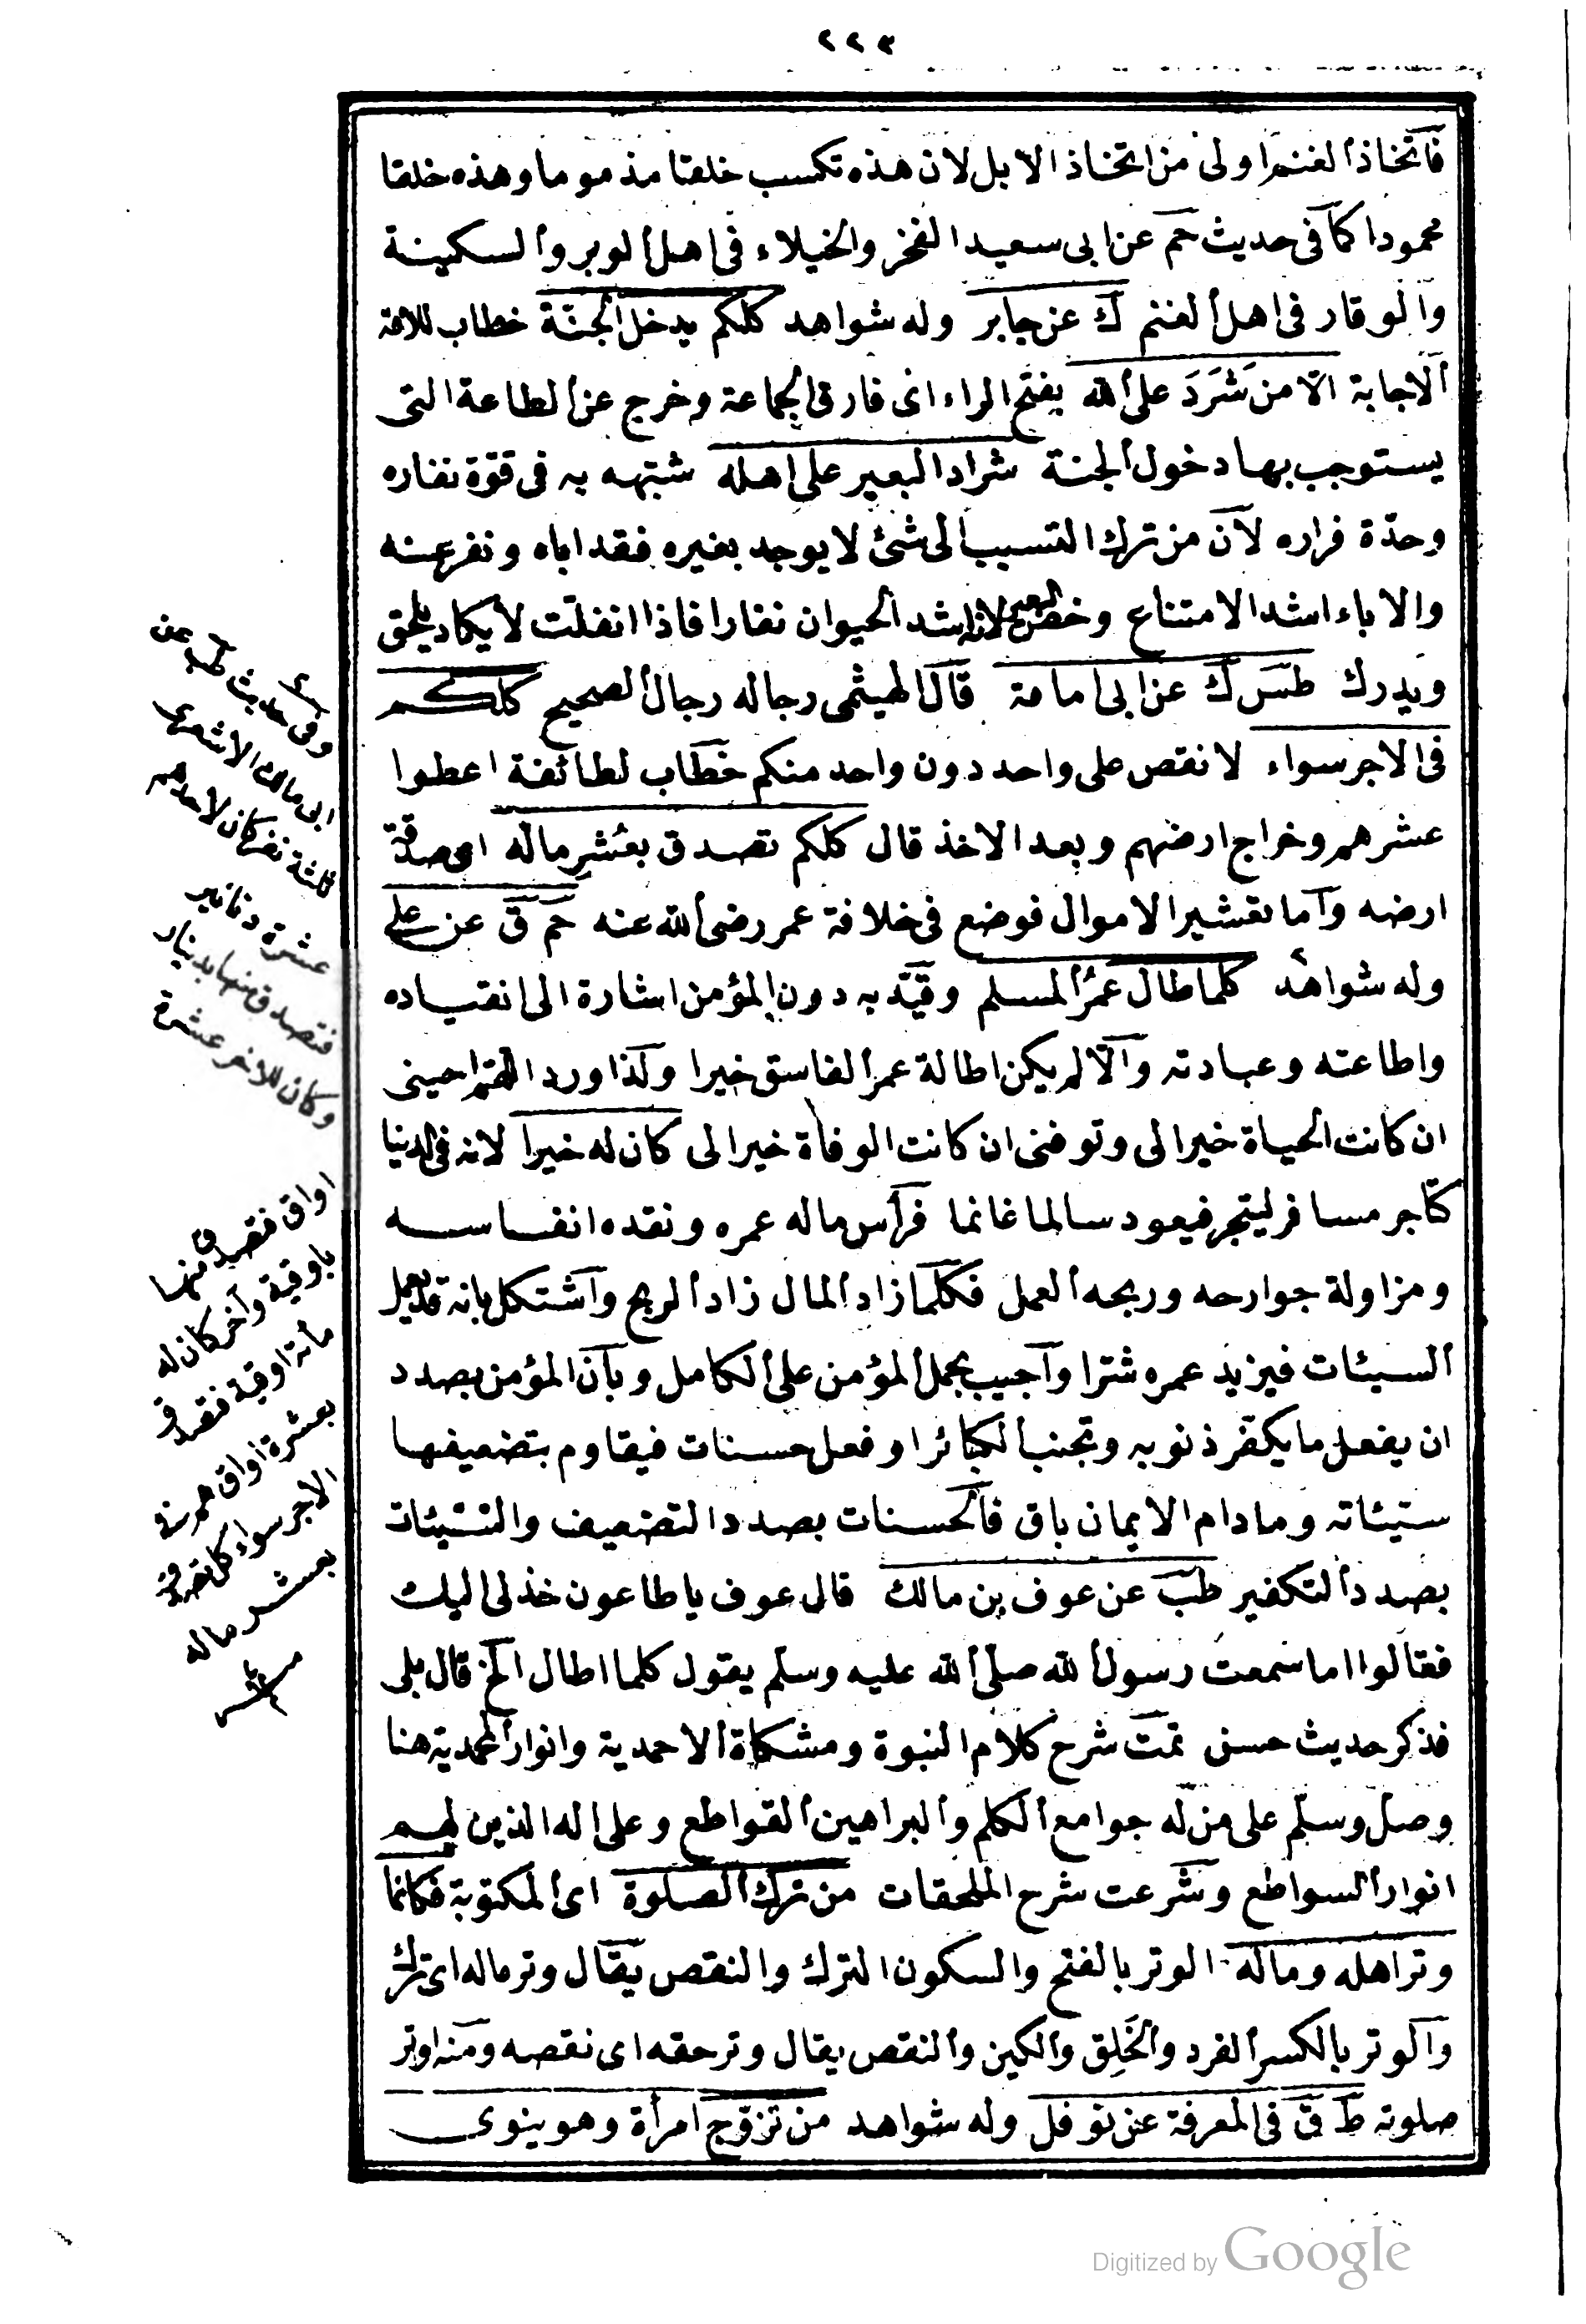 ٢٢٣
فاتخاذ الغنم اولى من اتخاذ الابل لان هذه تكسب خلقا مذموما وهذه خلقا
محمودا كما فى حديث حم عن ابى سعيد الفخر والخيلاء فى اهل الوبر والسكينة
والوقار فى اهل الغنم ك عن جابر وله شواهد كلكم يدخل الجنة خطاب للامة
الاجابة الا من شَرَدَ على الله بفتح الراء اى فارق الجماعة وخرج عن الطاعة التى
يستوجب بها دخول الجنة شراد البعير على اهله شبّهه به فى قوّة نفاره
وحدّة فراره لان من ترك التسبب الى شئ لا يوجد بغيره فقد اباه ونفر عنه
والاباء اشد الامتناع وخص البعير لانه اشد الحيوان نفارا فاذا انفلت لا يكاد يلحق
ويدرك طس ك عن ابى امامة قال الهيثمى رجاله رجال الصحيح كلكم
فى الاجر سواء لا نقص على واحد دون واحد منكم خطاب لطائفة اعطوا
عشرهم وخراج ارضهم وبعد الاخذ قال كلكم تصدق بعُشرِ ماله اى صدقة
ارضه واما تعشير الاموال فوضع فى خلافة عمر رضى الله عنه حم ق عن على
وله شواهد كلما طال عمُرُ المسلم وقيّد به دون المؤمن اشارة الى انقياده
واطاعته وعبادته والّا لم يكن اطالة عمر الفاسق خيرا ولذا ورد اللهم احينى
ان كانت الحياة خيرا لى وتوفنى ان كانت الوفاة خيرا لى كان له خيرا لانه فى الدنيا
كتاجر مسافر ليتجر فيعود سالما غانما فرأس ماله عمره ونقده انفاسه
ومزاولة جوارحه وربحه العمل فكلما زاد المال زاد الربح واشتكل بانه قد يعمل
السيئات فيزيد عمره شرّا واجيب بحمل المؤمن على الكامل وبان المؤمن بصدد
ان يفعل ما يكفر ذنوبه وتجنب الكبائر او فعل حسنات فيقاوم بتضعيفها
سيئاته ومادام الايمان باق فالحسنات بصدد التضعيف والسّيئات
بصدد التكفير طب عن عوف بن مالك قال عوف يا طاعون خذلى اليك
فقالوا اما سمعت رسول الله صلّى الله عليه وسلّم يقول كلما اطال الخ قال بلى
فذكر حديث حسن تمت شرح كلام النبوة ومشكاة الاحمدية وانوار المحمدية هنا
وصل وسلّم على من له جوامع الكلم والبراهين القواطع وعلى اله الذين لهم
انوار السواطع وشرعت شرح الملحقات من ترك الصلوة اى المكتوبة فكانما
وتر اهله وماله الوتر بالفتح والسكون الترك والنقص يقال وتر ماله اى ترك
والوتر بالكسر الفرد والخَلِق والكين والنقص يقال وتر حقه اى نقصه ومنه اوتر
صلوته ط ق فى المعرفة عن نوفل وله شواهد من تزوّج امرأة وهو ينوى
وفى حديث طب عن
ابى مالك الاشعرى
ثلثة نفر كان لاحدهم
عشرة دنانير
فتصدق منها بدينار
وكان للآخر عشرة
اواق فتصدق منها
باوقية وآخر كان له
مأة اوقية فتصدق
بعشرة اواق هم فى
الاجر سواء كل تصدق
بعشر ماله